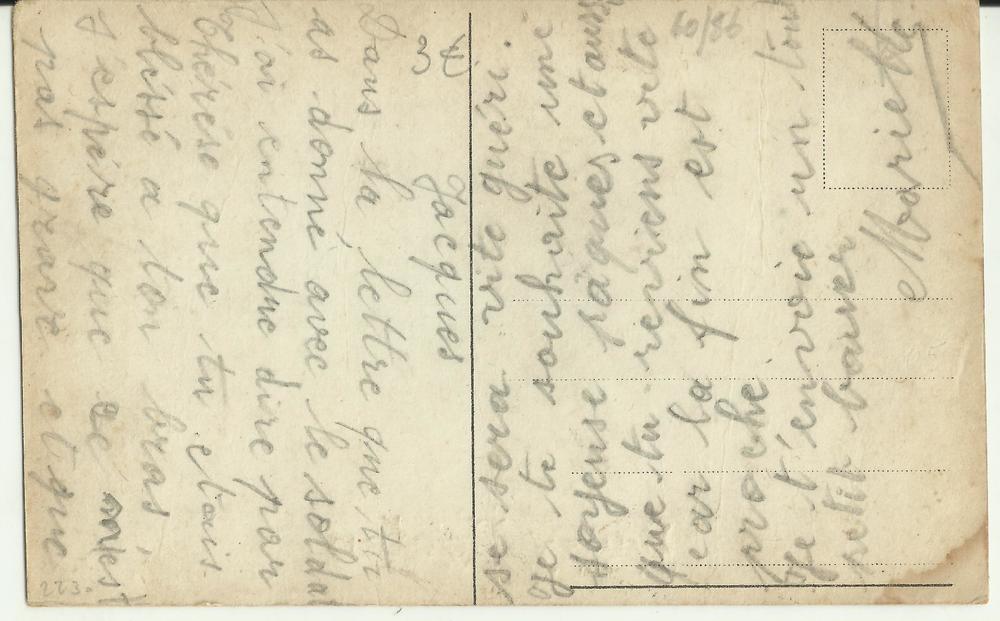 34
Jacques
Dans la lettre que tu
as donné avec le soldat
J'ai entendue dire par
Thérèse que tu etais
blessé a ton bras,
J'espère que ce n'est
pas grave et que
se sera vite guéri.
Je te souhaite une
joyeuse pâques et aussi
que tu reviens vite
car la fin est
proche
Je t'envoie un tout
petit baiser
Mariette
223.